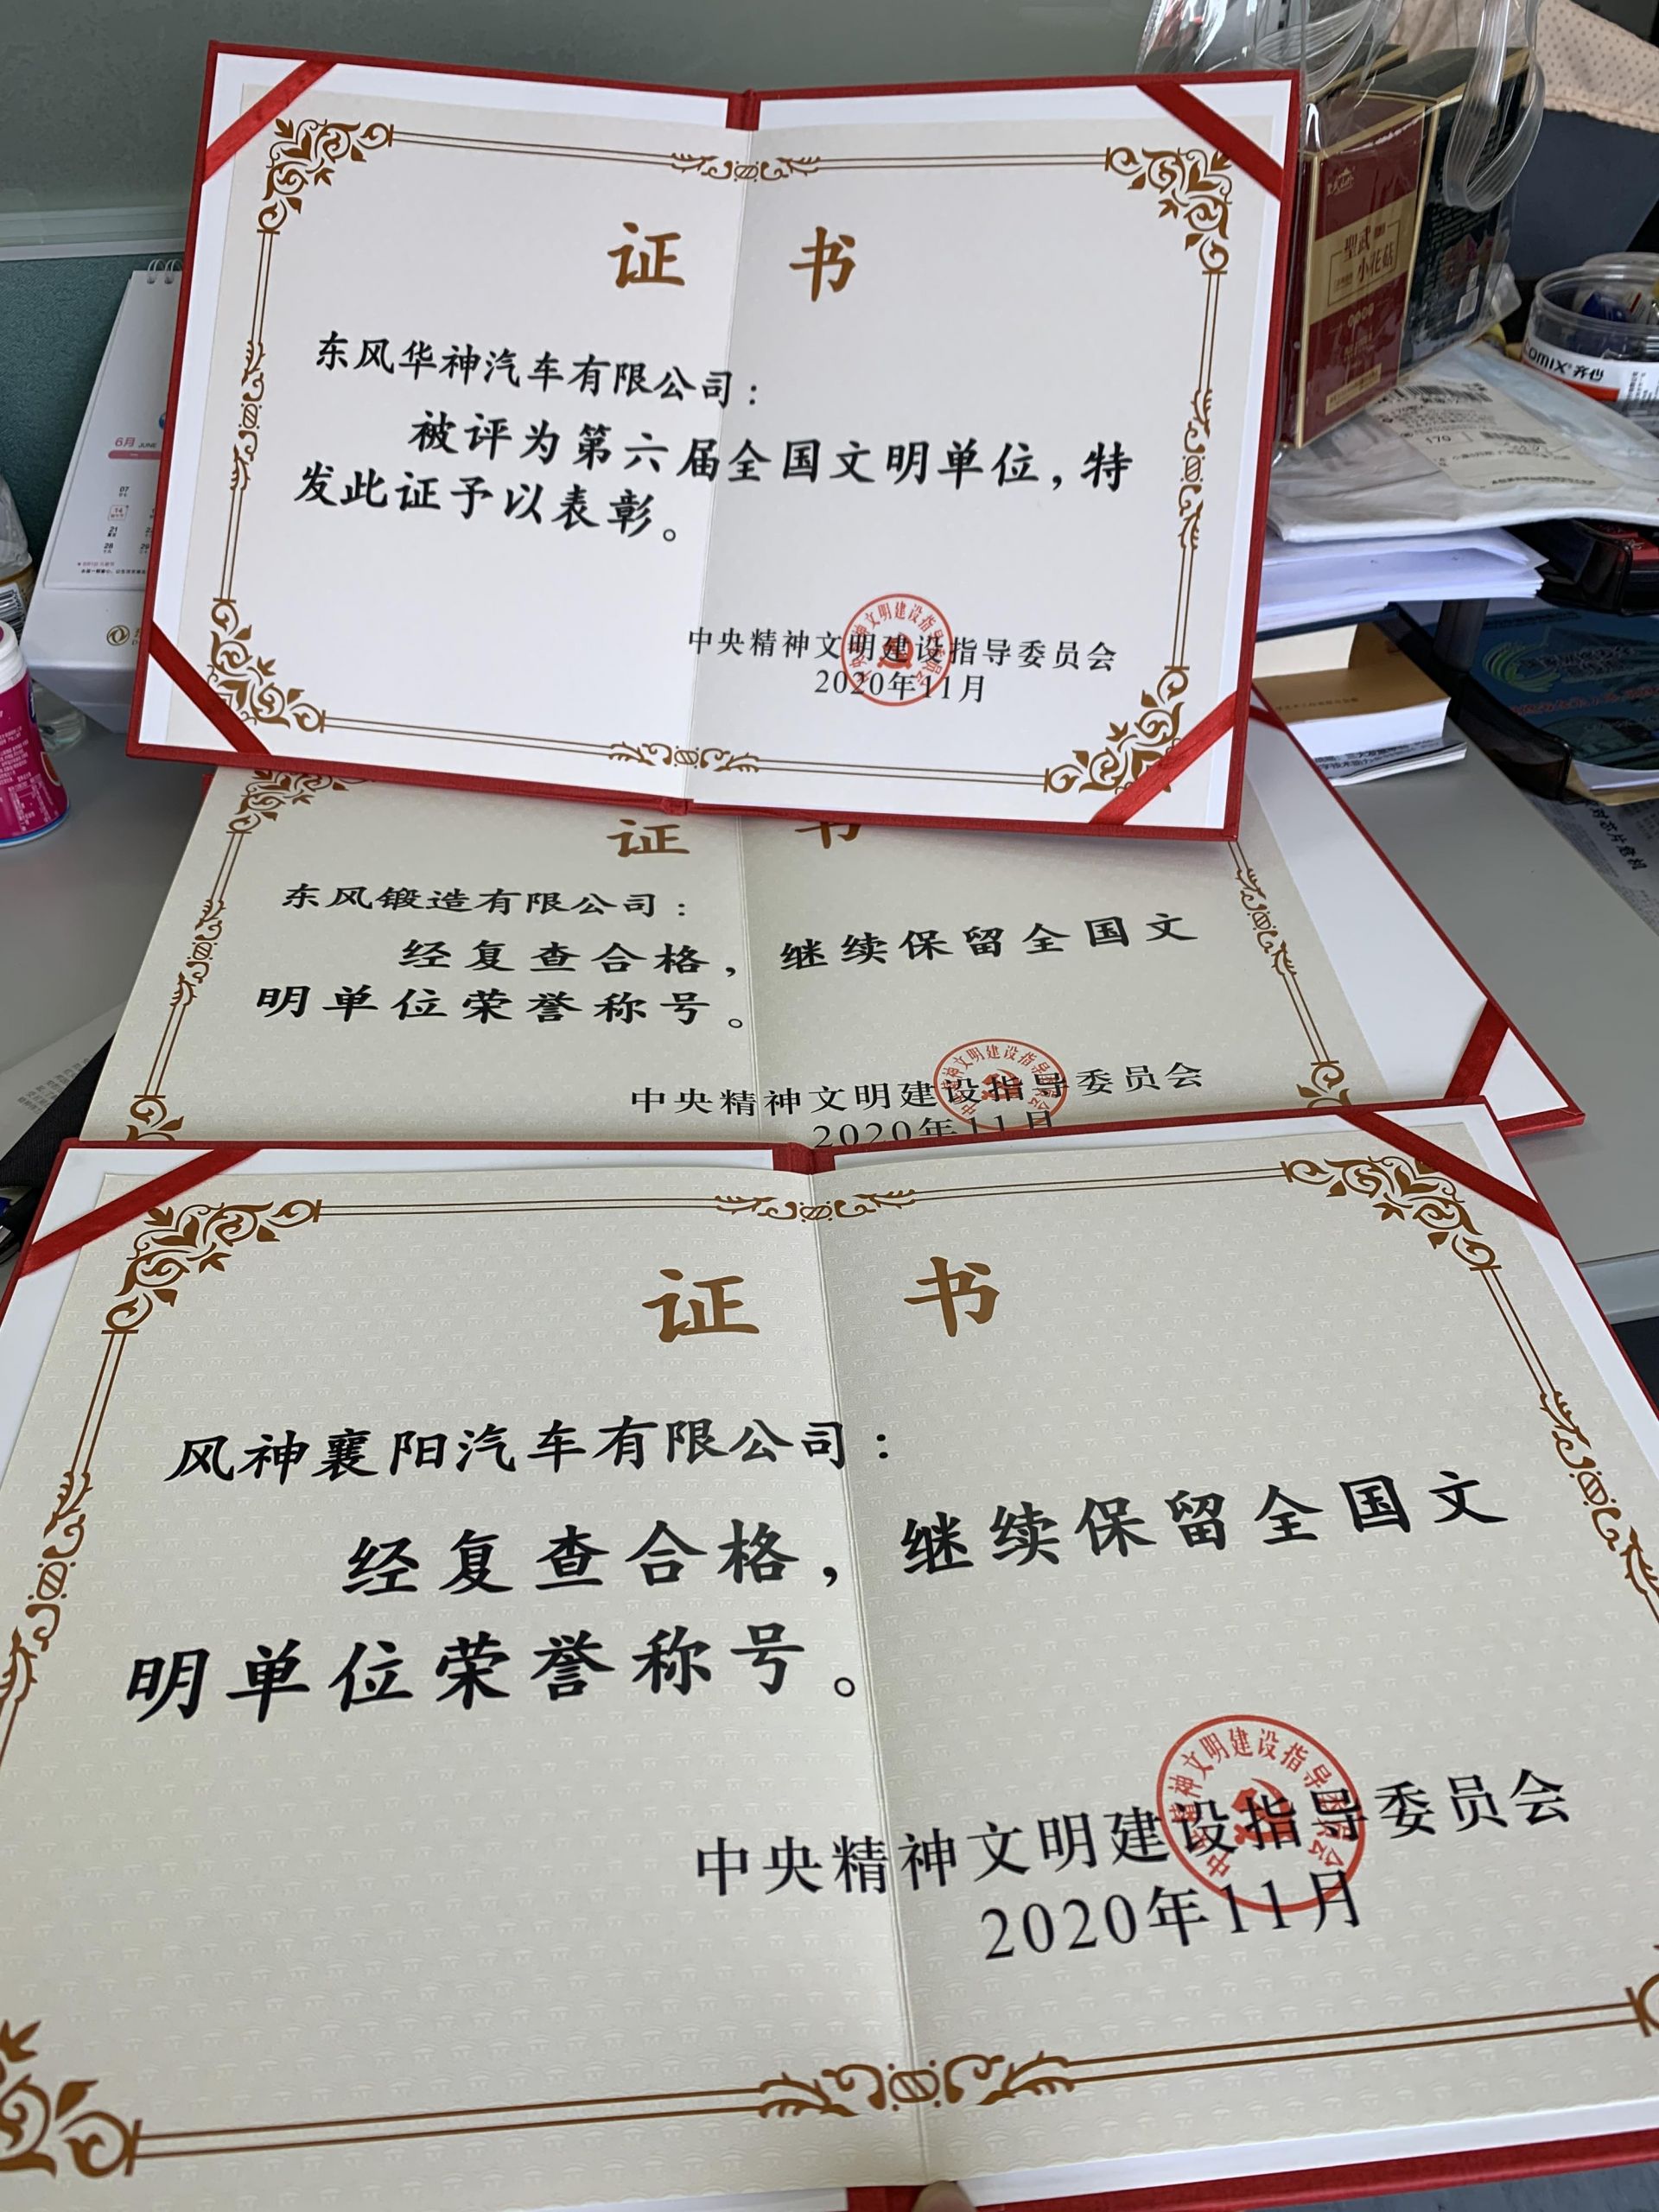 证 书
东风华神汽车有限公司：
被评为第六届全国文明单位，特
发此证予以表彰。
中央精神文明建设指导委员会
2020年11月
证 书
东风锻造有限公司：
经复查合格，继续保留全国文
明单位荣誉称号。
中央精神文明建设指导委员会
2020年11月
证 书
风神襄阳汽车有限公司：
经复查合格，继续保留全国文
明单位荣誉称号。
中央精神文明建设指导委员会
2020年11月
聖武
小花菇
齐心
6月 JUNE
07
14
21
28
29
170